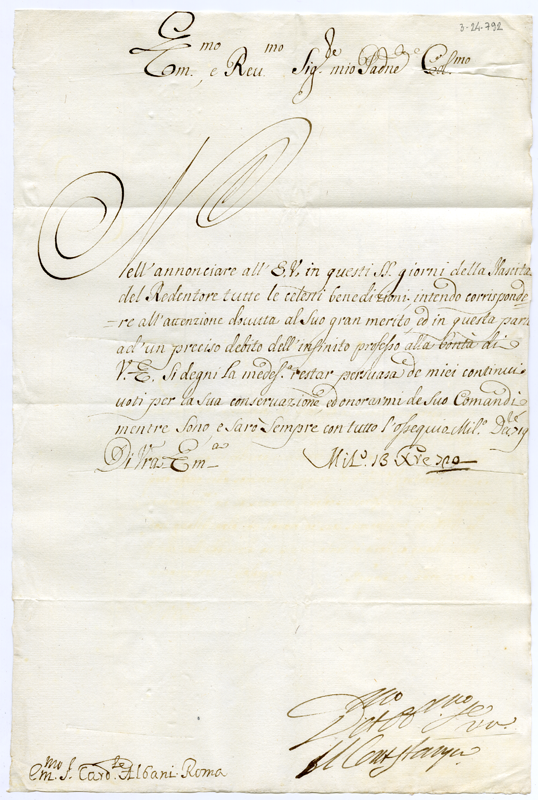 3-24-792
Em.mo e Reu.mo Sig.re mio Padne Col.mo
Nell' annonciare all' E.V. in questi SS. giorni della Nascita
del Redentore tutte le celesti benedizioni, intendo corrisponde=
=re all' attenzione douuta al Suo gran merito, ed in questa parte
ad' un preciso debito dell' infinito professo alla bontà di
V.E. Si degni la medes.a restar persuasa de miei continui
uoti per la Sua conseruazione ed onorarmi de Suo Comandi
mentre Sono, e Sarò Sempre con tutto l' ossequio Mil.o
Di Vra Em.a Mil.o 13 Xre 700
Em.mo S. Card.le Albani. Roma